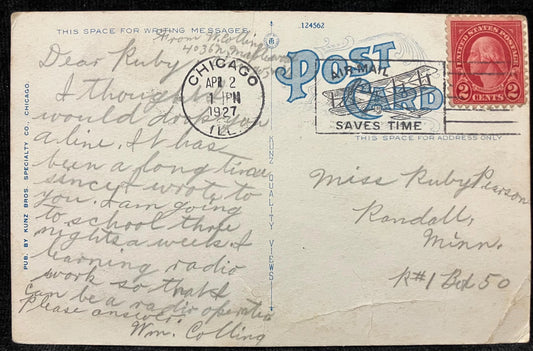 THIS SPACE FOR WRITING MESSAGES
124562
From W. Colling
4036 N.
Dear Ruby
I thought I
would drop you
a line. It has
been a long time
since I wrote to
you. I am going
to school three
nights a week. I
learning radio
work so that I
can be a radio operator
Please answer.
Wm. Colling
PUB. BY KUNZ BROS. SPECIALTY CO., CHICAGO.
KUNZ QUALITY VIEWS
POST CARD
CHICAGO
APR 2
1 PM
1927
ILL.
AIR MAIL
SAVES TIME
UNITED STATES POSTAGE
2 CENTS 2
THIS SPACE FOR ADDRESS ONLY
Miss Ruby Pearson
Randall,
Minn.
R#1 Bx 50